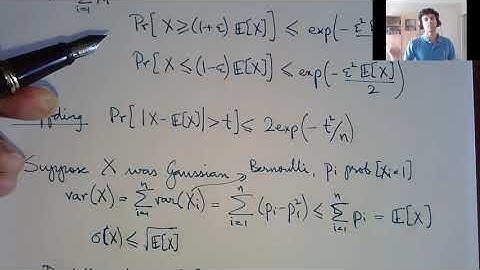 i=1
Pr[X ≥ (1+ε) E[X]] ≤ exp(- ε² E[X]
Pr[X ≤ (1-ε) E[X]] ≤ exp(- ε² E[X] / 2)
Pr[ |X - E[X]| > t] ≤ 2exp(- t²/n)
Suppose X was Gaussian Bernoulli, pi prob[Xi=1]
var(X) = Σ_{i=1}^{n} var(Xi) = Σ_{i=1}^{n} (pi - pi²) ≤ Σ_{i=1}^{n} pi = E[X]
σ(X) ≤ √E[X]